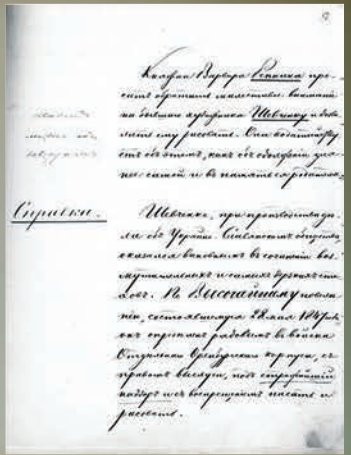 Княжна Варвара Репнина про-
ситъ обратить милостивое вниманіе
на бывшаго художника Шевченку и дозво-
лить ему рисовать. Она ходатайству-
етъ объ этомъ, какъ объ одолженіи для
ней самой и въ память ея родителя.
Справка.
Шевченко, при производствѣ дѣ-
ла объ Украйно-Славянскомъ обществѣ,
оказался виновнымъ въ сочиненіи воз-
мутительныхъ и самыхъ дерзкихъ сти-
ховъ. По Высочайшему повелѣ-
нію, состоявшемуся 28 мая 1847 года,
онъ опредѣленъ рядовымъ въ войска
Отдѣльнаго Оренбургскаго корпуса, съ
правомъ выслуги, подъ строжайшій
надзоръ и съ воспрещеніемъ писать и
рисовать.